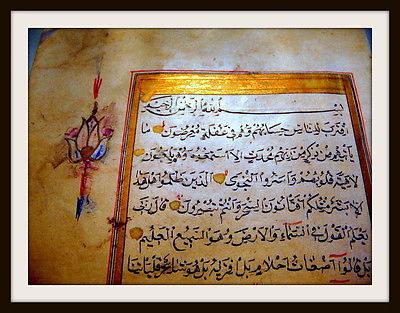 بسم الله الرحمن الرحيم
اقترب للناس حسابهم وهم في غفلة معرضون ما
يأتيهم من ذكر من ربهم محدث الا استمعوه وهم يلعبون
لاهية قلوبهم واسروا النجوى الذين ظلموا هل هذا
الا بشر مثلكم افتأتون السحر وانتم تبصرون قل ربي
يعلم القول في السماء والارض وهو السميع العليم
بل قالوا اضغاث احلام بل افتريه بل هو شاعر فليأتنا